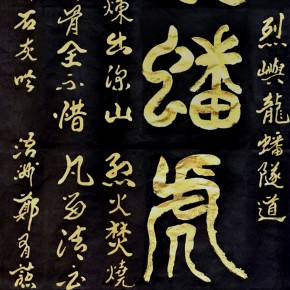 烈嶼龍蟠隧道
蟠虎
煉出深山烈火焚燒
骨全不惜留清白
石灰吟浯洲鄭有